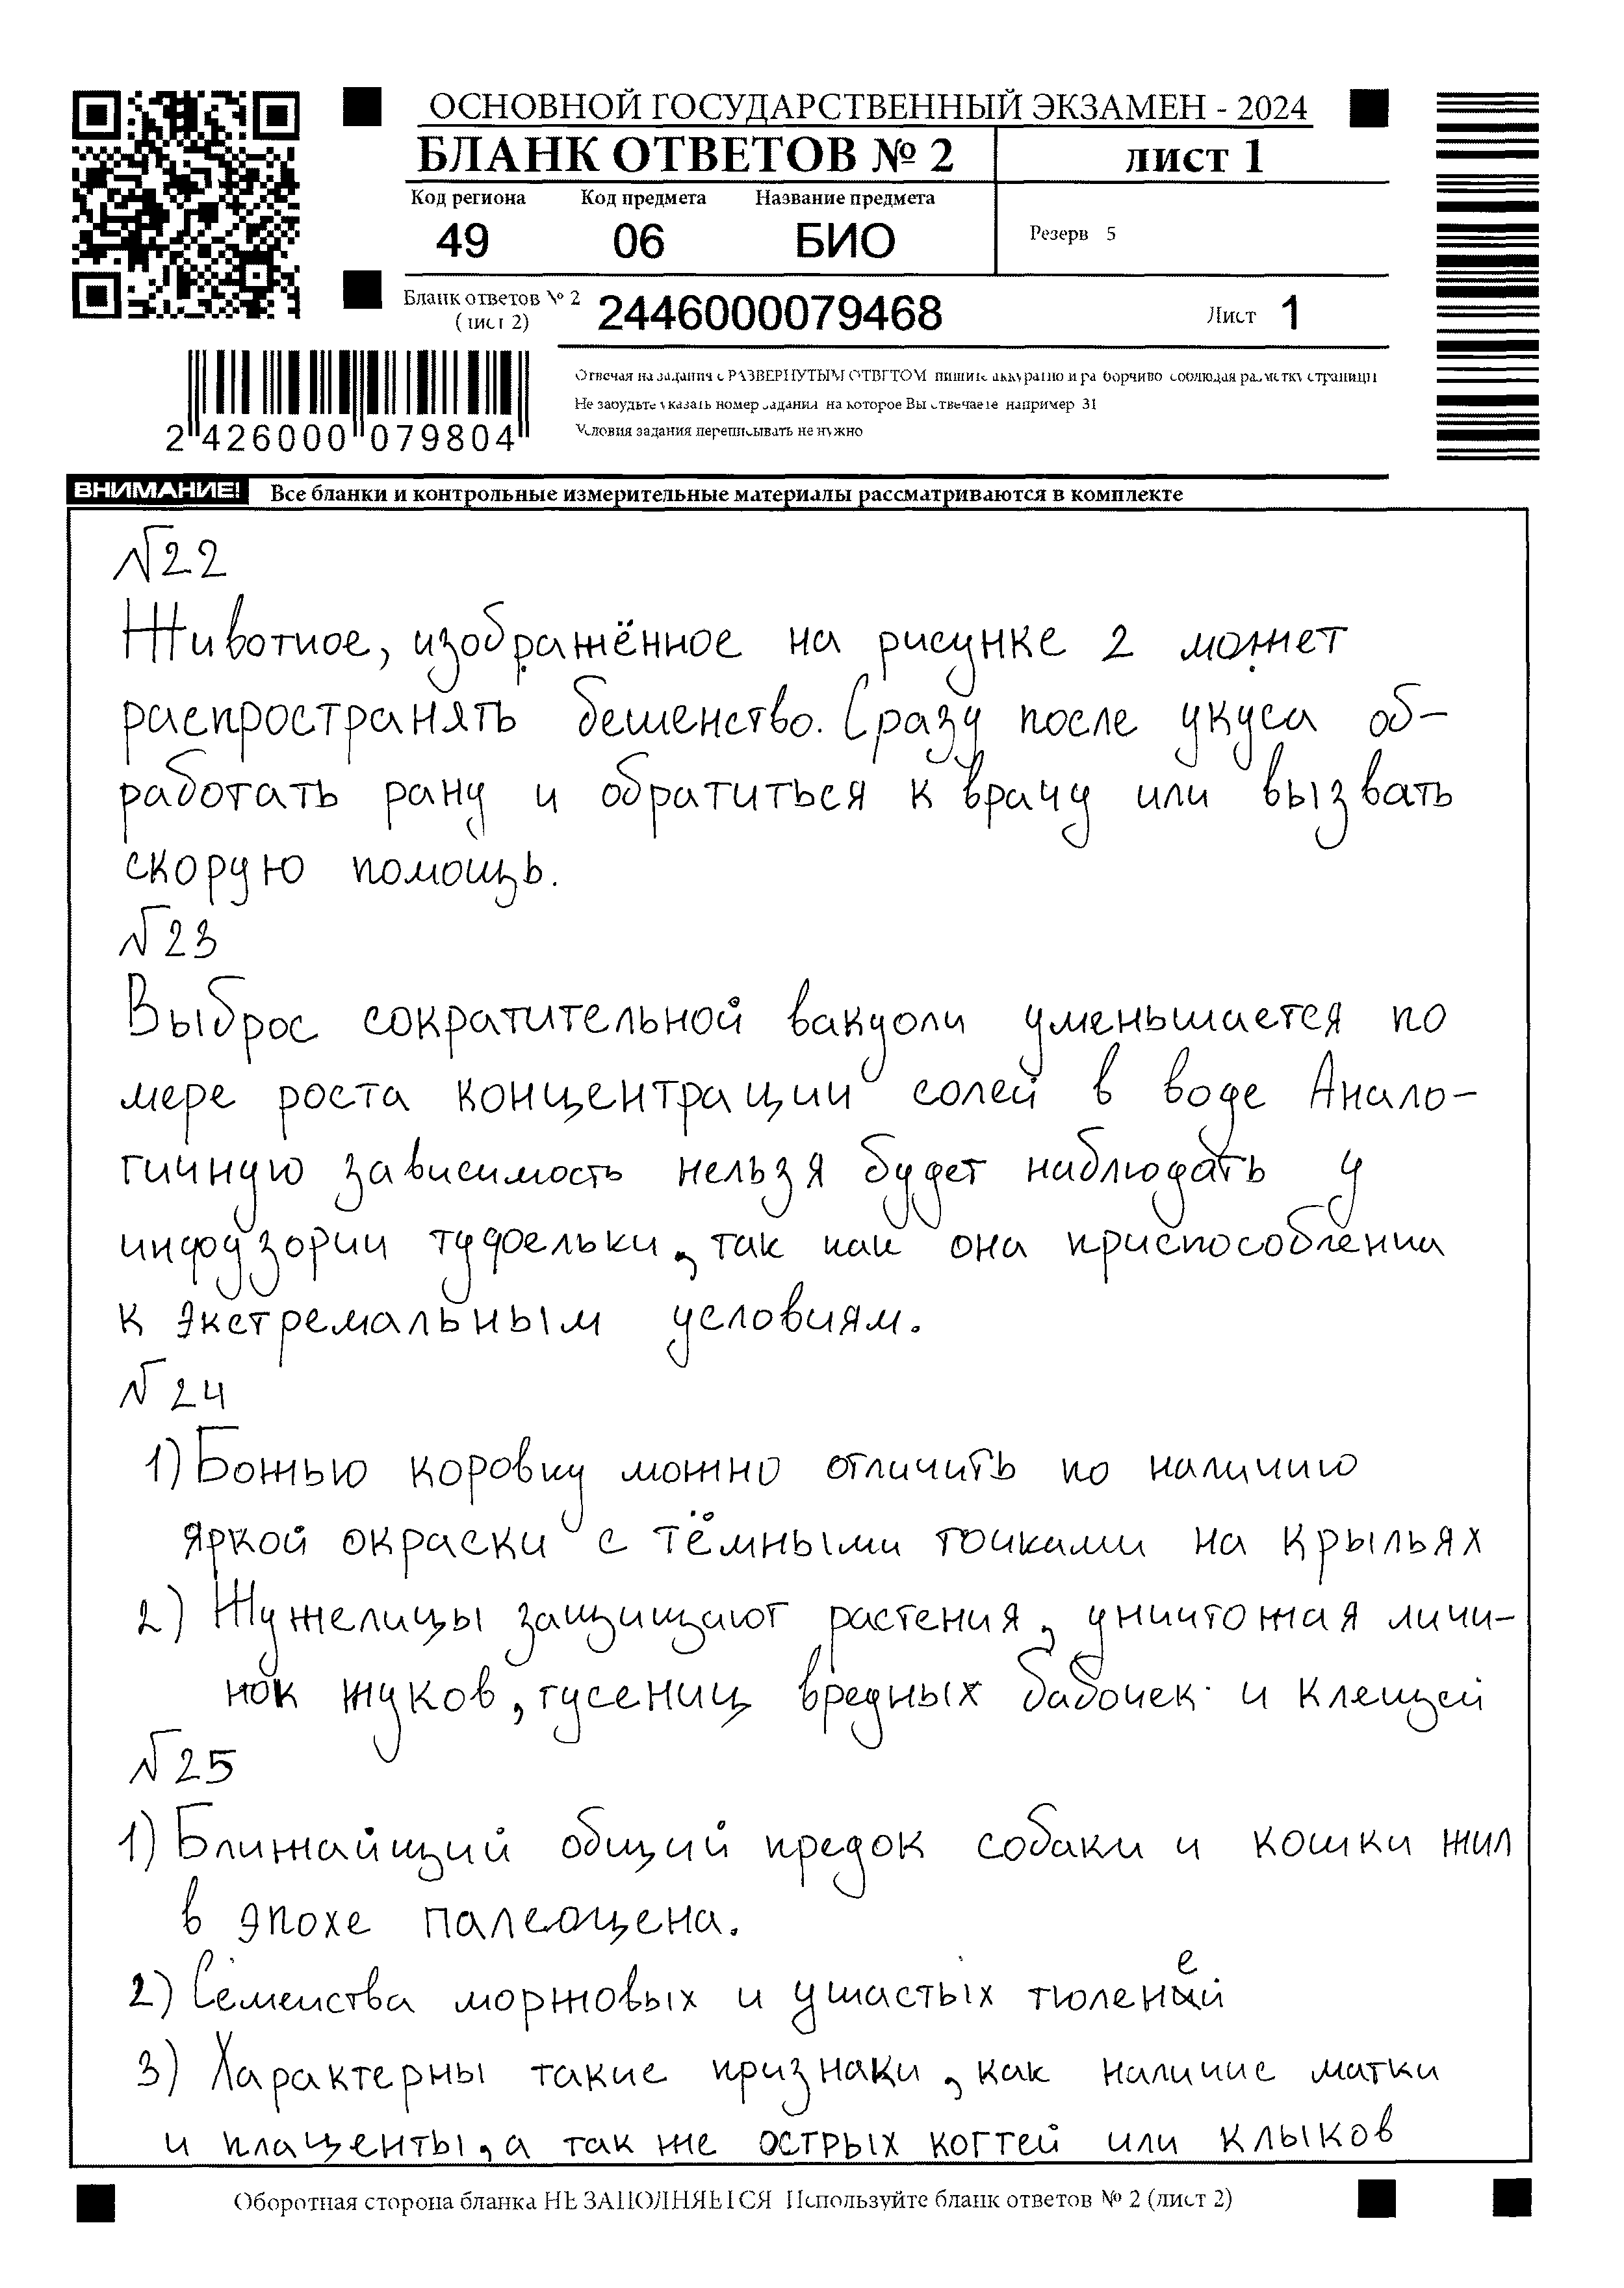 ОСНОВНОЙ ГОСУДАРСТВЕННЫЙ ЭКЗАМЕН - 2024
БЛАНК ОТВЕТОВ № 2
лист 1
Код региона Код предмета Название предмета
49 06 БИО
Резерв 5
Бланк ответов № 2
(лист 2)
2446000079468
Лист 1
2 426000 079804
Отвечая на задания с РАЗВЕРНУТЫМ ОТВЕТОМ пишите аккуратно и разборчиво соблюдая разметку страницы
Не забудьте указать номер задания на которое Вы отвечаете например 31
Условия задания переписывать не нужно
ВНИМАНИЕ! Все бланки и контрольные измерительные материалы рассматриваются в комплекте
№22
Животное, изображённое на рисунке 2 может
распространять бешенство. Сразу после укуса об-
работать рану и обратиться к врачу или вызвать
скорую помощь.
№23
Выброс сократительной вакуоли уменьшается по
мере роста концентрации солей в воде Анало-
гичную зависимость нельзя будет наблюдать у
инфузории туфельки, так как она приспособленна
к экстремальным условиям.
№24
1) Божью коровку можно отличить по наличию
яркой окраски с тёмными точками на крыльях
2) Жужелицы защищают растения, уничтожая личи-
нок жуков, гусениц вредных бабочек и клещей
№25
1) Ближайщий общий предок собаки и кошки жил
в эпохе палеоцена.
2) Семейства моржовых и ушастых тюленей
3) Характерны такие признаки, как наличие матки
и плаценты, а так же острых когтей или клыков
Оборотная сторона бланка НЕ ЗАПОЛНЯЕТСЯ Используйте бланк ответов № 2 (лист 2)